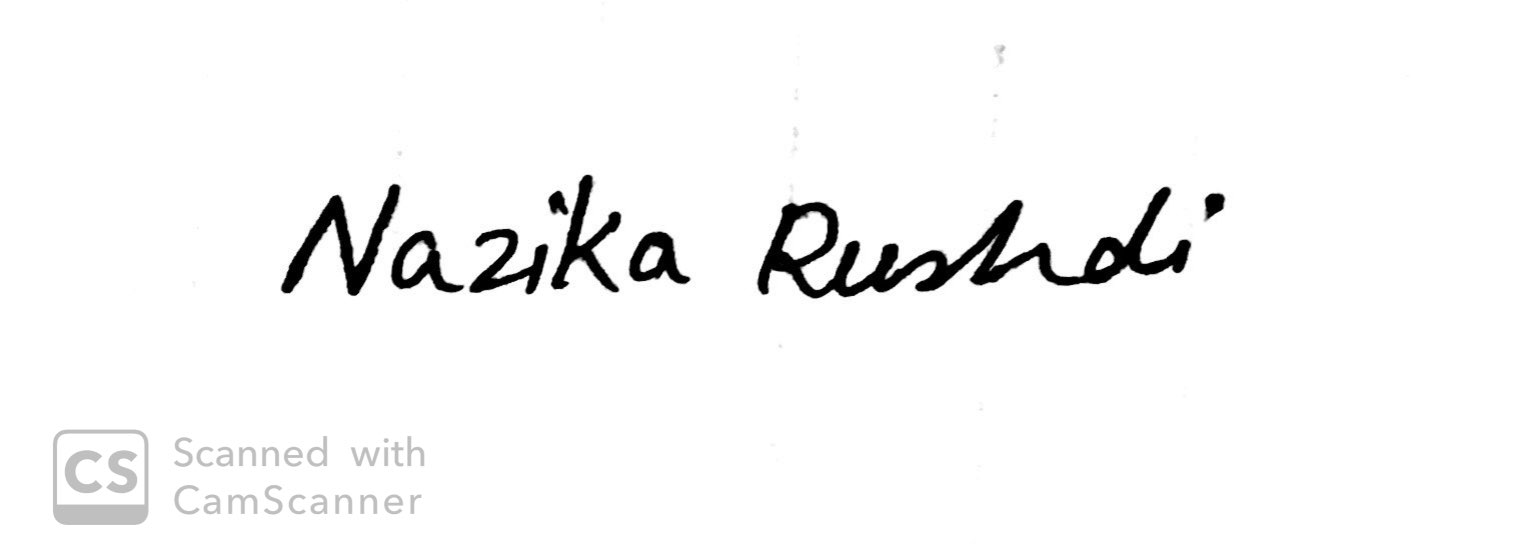 Nazika Rushdi
CS Scanned with
CamScanner